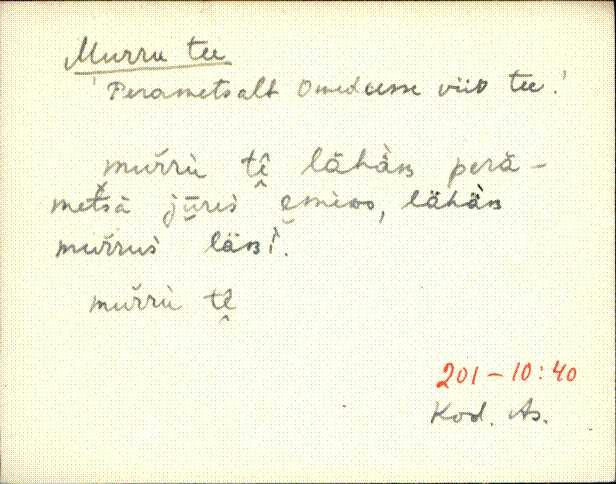 Murru tee
'Perametsalt Omedusse viiv tee.'
mur̆rù tê̬ lähäʙ perä-
metsä jūres emìᴅᴅs, lähäʙ
mur̆rus läʙì.
mur̆rù tê̬
201-10:40
Kod. As.